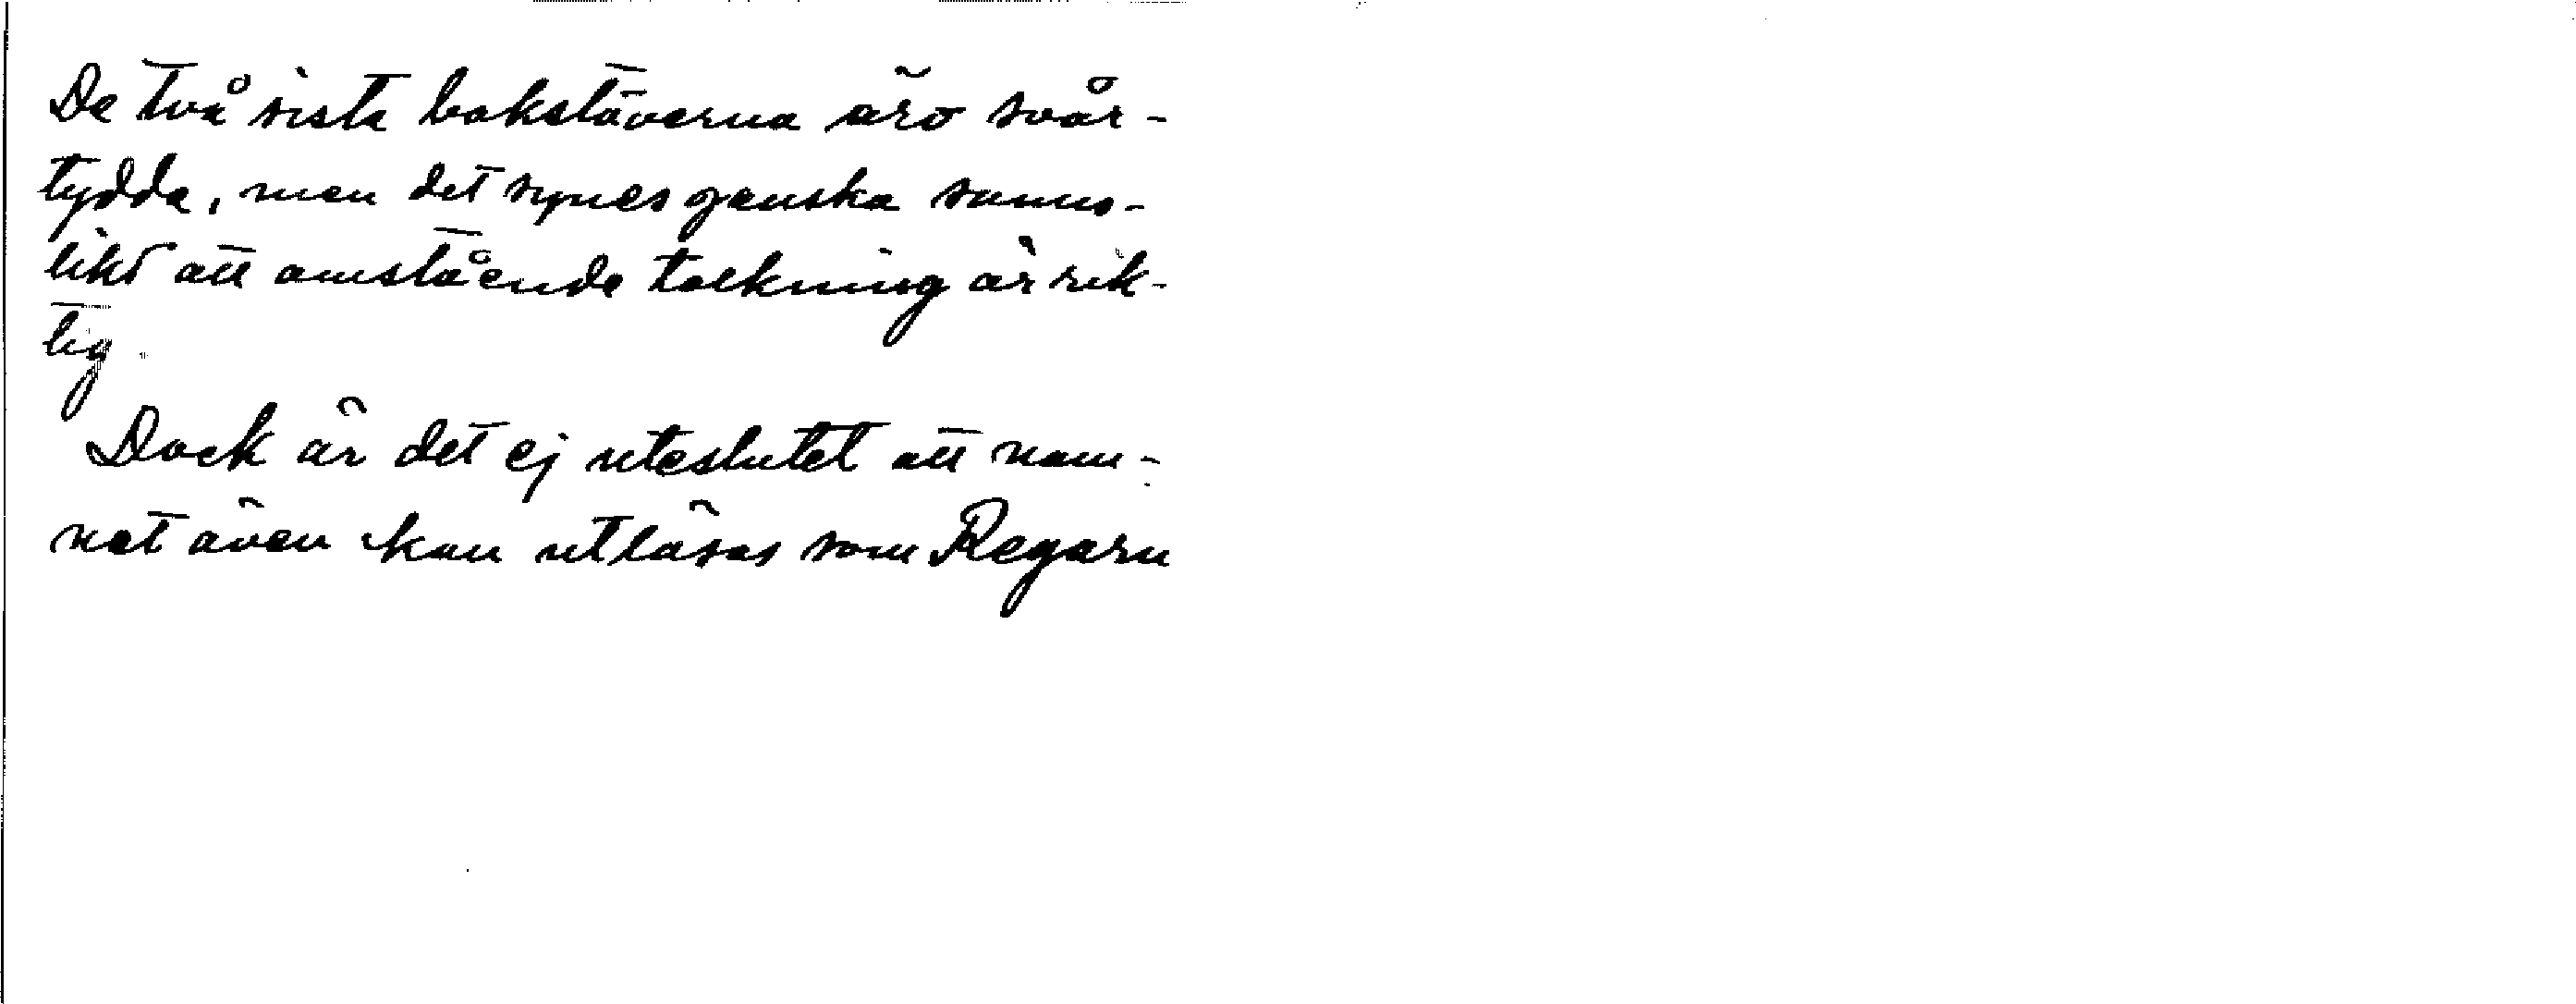 De två sista bokstäverna äro svår-
tydda, men det synes ganska sanno-
likt att omstående tolkning är rik-
tig.
Dock är det ej uteslutet att nam-
net även kan utläsas som Regarn